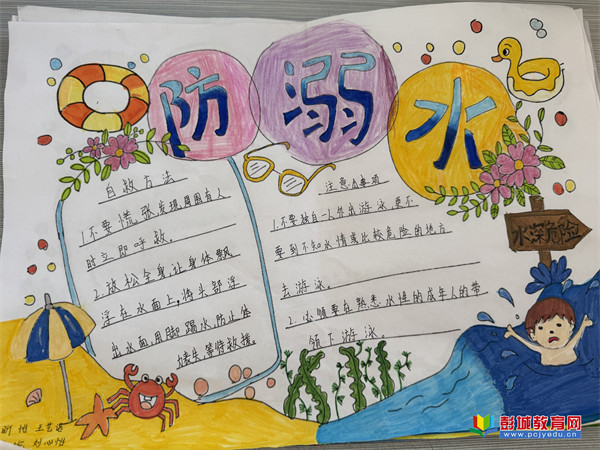 防溺水
自救方法
1.不要慌张发现周围有人
时立即呼救。
2.放松全身,让身体飘
浮在水面上,将头部浮
出水面用脚踢水防止体
力丧失等待救援。
注意事项
1.不要独自一人外出游泳更不
要到不知水情或比较危险的地方
去游泳。
2.必须要在熟悉水性的成年人的带
领下游泳。
水深危险
彭城教育网
www.pcjyedu.cn